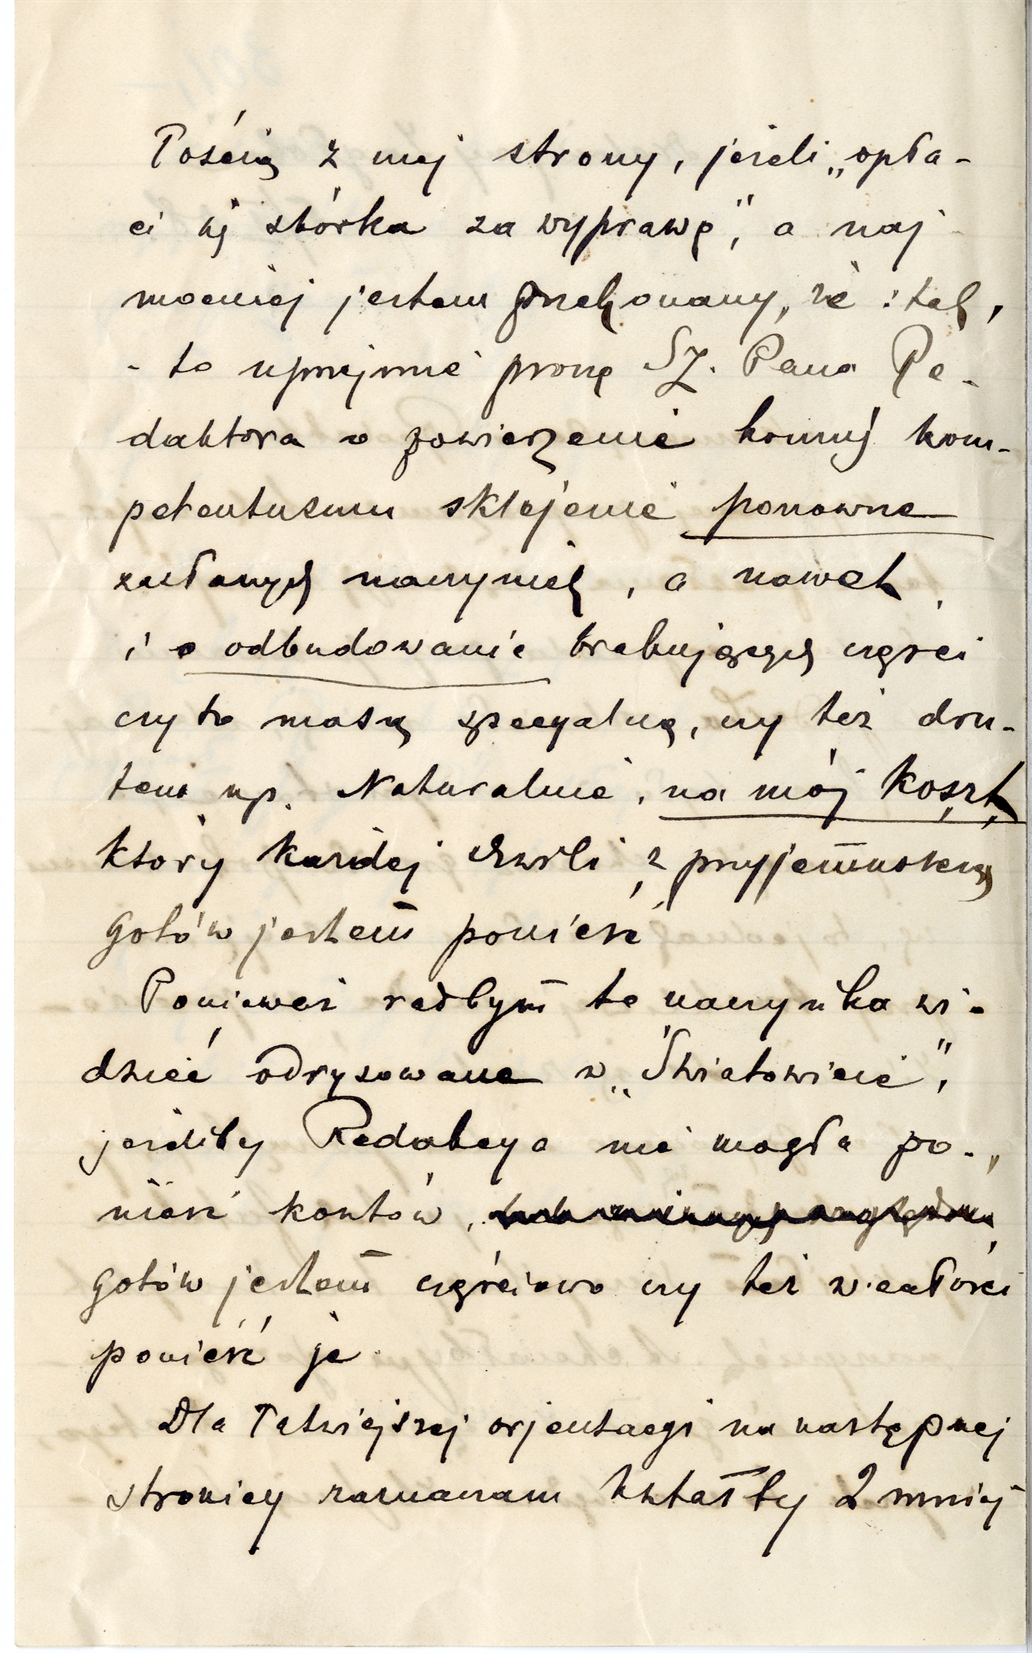 Pościg z mej strony, jeżeli „opła-
ci się skórka za wyprawę", a naj
mocniej jestem przekonany, że : tak,
- to uprzejmie proszę Sz. Pana Re-
daktora o powierzenie komuś kom-
petentnemu sklejenie ponowne
zesłanych naczyniek, a nawet
i o odbudowanie brakujących części
czy to masą specyalną, czy też dru-
tem np. Naturalnie, na mój koszt,
który każdej chwili z przyjemnością
gotów jestem ponieść
Ponieważ radbym te naczyńka wi-
dzieć odrysowane w „Światowicie",
jeżeliby Redakcya nie mogła po-
nieść kosztów,
gotów jestem częściowo czy też w całości
ponieść je
Dla łatwiejszej orjentacyi na następnej
stronicy zaznaczam kształty 2 mniej